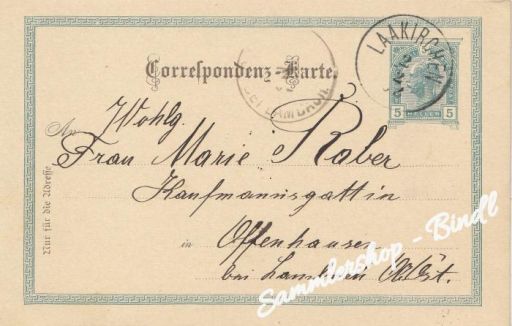 LAAKIRCHEN
Correspondenz-Karte.
5 HELLER 5
An
Wohlg.
Frau Marie Raber
Kaufmannsgattin
in Offenhausen
bei Lambach ObÖst.
Nur für die Adresse
Sammlershop - Bindl